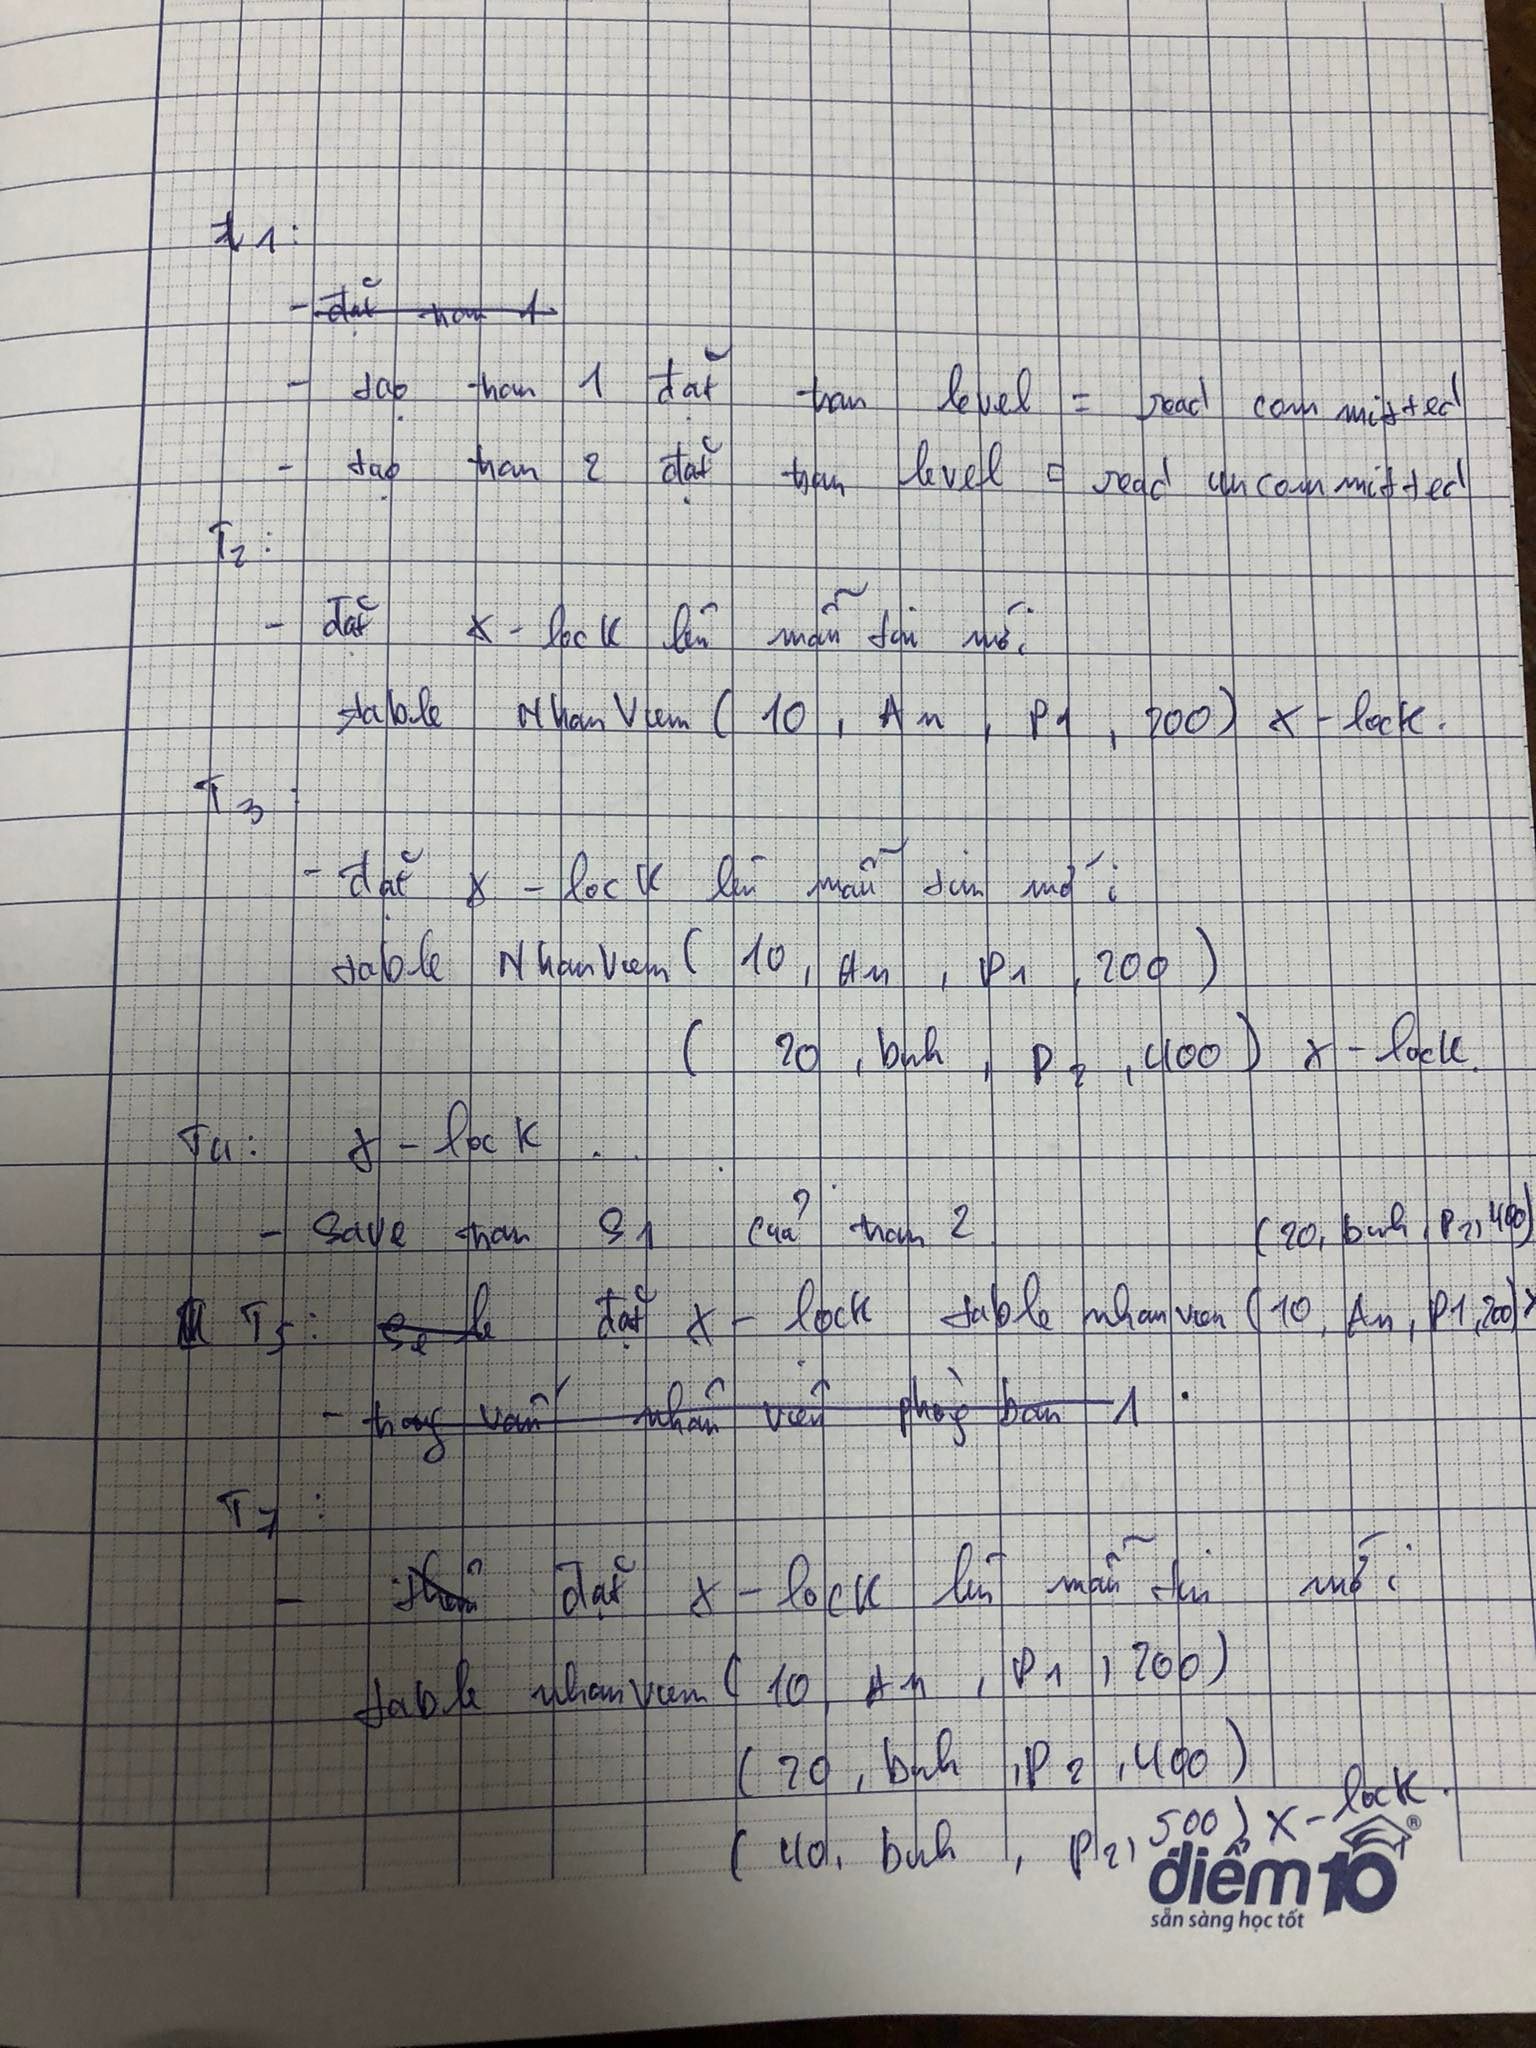 t1:
- đặt tran 1
- tạo tran 1 đặt tran level = read committed
- tạo tran 2 đặt tran level = read uncommitted
T2:
- đặt x-lock lên mẫu tin mới
table NhanVien ( 10 , An , P1 , 200 ) x-lock.
T3:
- đặt x-lock lên mẫu tin mới
table NhanVien ( 10 , An , P1 , 200 )
( 20 , bình , P2 , 400 ) x-lock.
T4: x-lock
- Save tran S1 của tran 2 (20, bình, P2, 400)
T5: đặt x-lock table nhanvien (10, An, P1, 200) x
- truy vấn nhân viên phòng ban 1
T7:
- đặt x-lock lên mẫu tin mới
table nhanvien ( 10, An , P1 , 200 )
( 20 , bình , P2 , 400 )
( 40, bình , P2, 500 ) x-lock.
điểm10®
sẵn sàng học tốt